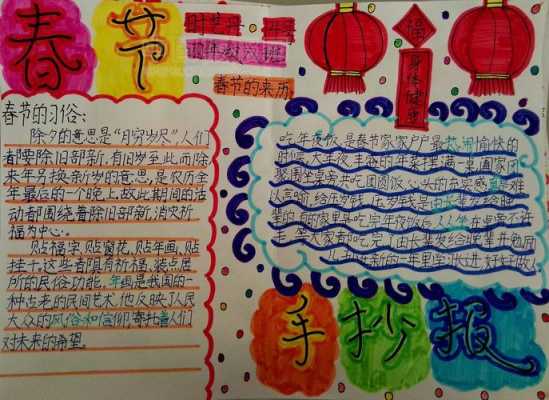 春节
春节的来历
福
身体健康
春节的习俗:
除夕的意思是“月穷岁尽”人们
都要除旧部新,有旧岁至此而除
来年另换新岁的意思,是农历全
年最后的一个晚上,故此期间的活
动都围绕着除旧部新,消灾祈
福为中心。
贴福字、贴窗花、贴年画、贴
挂千,这些都具有祈福、装点居
所的民俗功能,年画是我国的一
种古老的民间艺术,他反映了人民
大众的风俗和信仰,寄托着人们
对未来的希望。
吃年夜饭,是春节家家户户最热闹愉快的
时候,大年夜,丰盛的年菜摆满一桌,阖家团
聚,围坐桌旁,共吃团圆饭,心头的充实感真是难
以言喻,给压岁钱,压岁钱是由长辈发给晚
辈的,有的家里是吃完年夜饭后,人人坐在桌旁不许
走,等大家都吃完了,由长辈发给晚辈,并勉励
在新的一年里学习长进,好好做人
手抄报